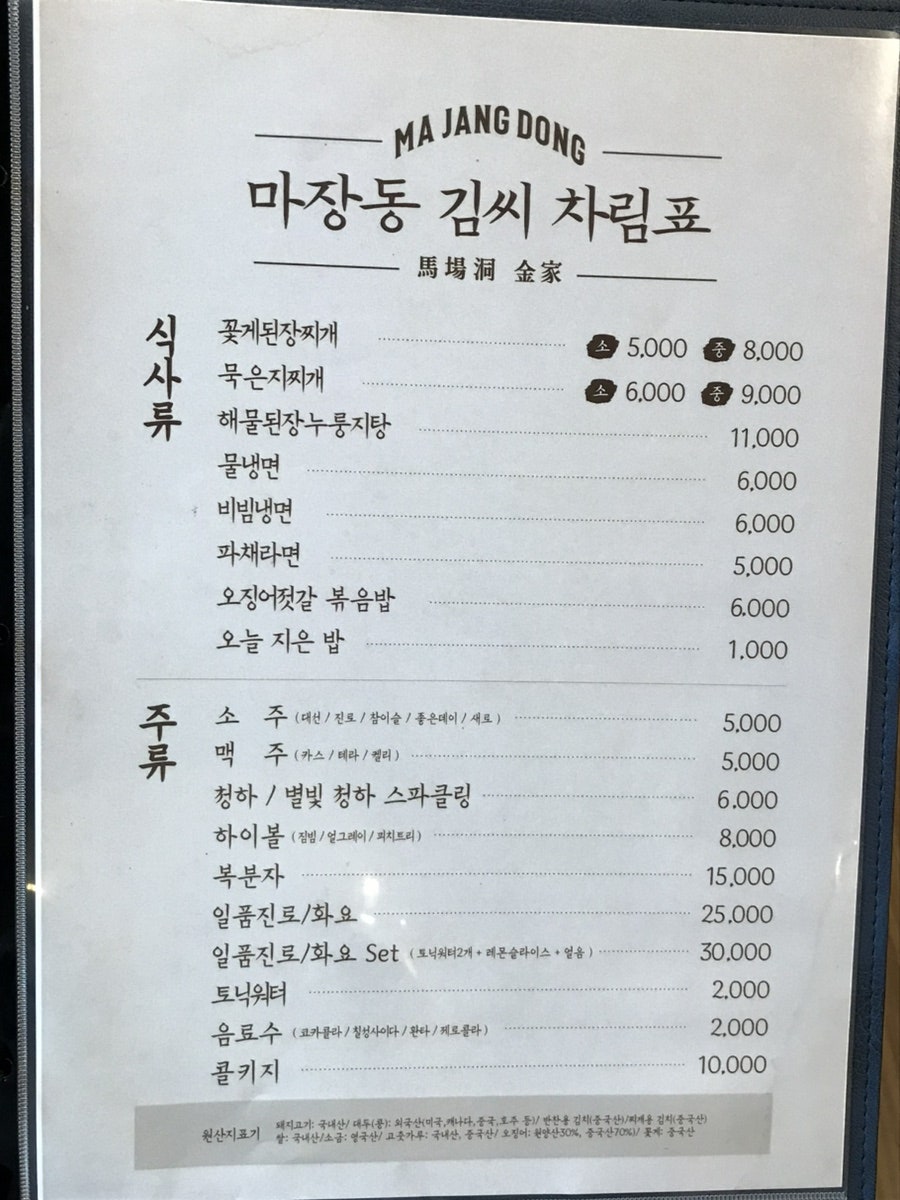 MA JANG DONG
마장동 김씨 차림표
馬場洞 金家
식사류
꽃게된장찌개 소 5,000 중 8,000
묵은지찌개 소 6,000 중 9,000
해물된장누룽지탕 11,000
물냉면 6,000
비빔냉면 6,000
파채라면 5,000
오징어젓갈 볶음밥 6,000
오늘 지은 밥 1,000
주류
소 주 (대선 / 진로 / 참이슬 / 좋은데이 / 새로) 5,000
맥 주 (카스 / 테라 / 켈리) 5,000
청하 / 별빛 청하 스파클링 6,000
하이볼 (짐빔 / 얼그레이 / 피치트리) 8,000
복분자 15,000
일품진로/화요 25,000
일품진로/화요 Set (토닉워터2개 + 레몬슬라이스 + 얼음) 30,000
토닉워터 2,000
음료수 (코카콜라 / 칠성사이다 / 환타 / 제로콜라) 2,000
콜키지 10,000
원산지표기
돼지고기: 국내산/ 대두(콩): 외국산(미국,캐나다,중국,호주 등)/ 반찬용 김치(중국산)/찌개용 김치(중국산)
쌀: 국내산/소금: 영국산/ 고춧가루: 국내산, 중국산/ 오징어: 원양산30%, 중국산70%)/ 꽃게: 중국산